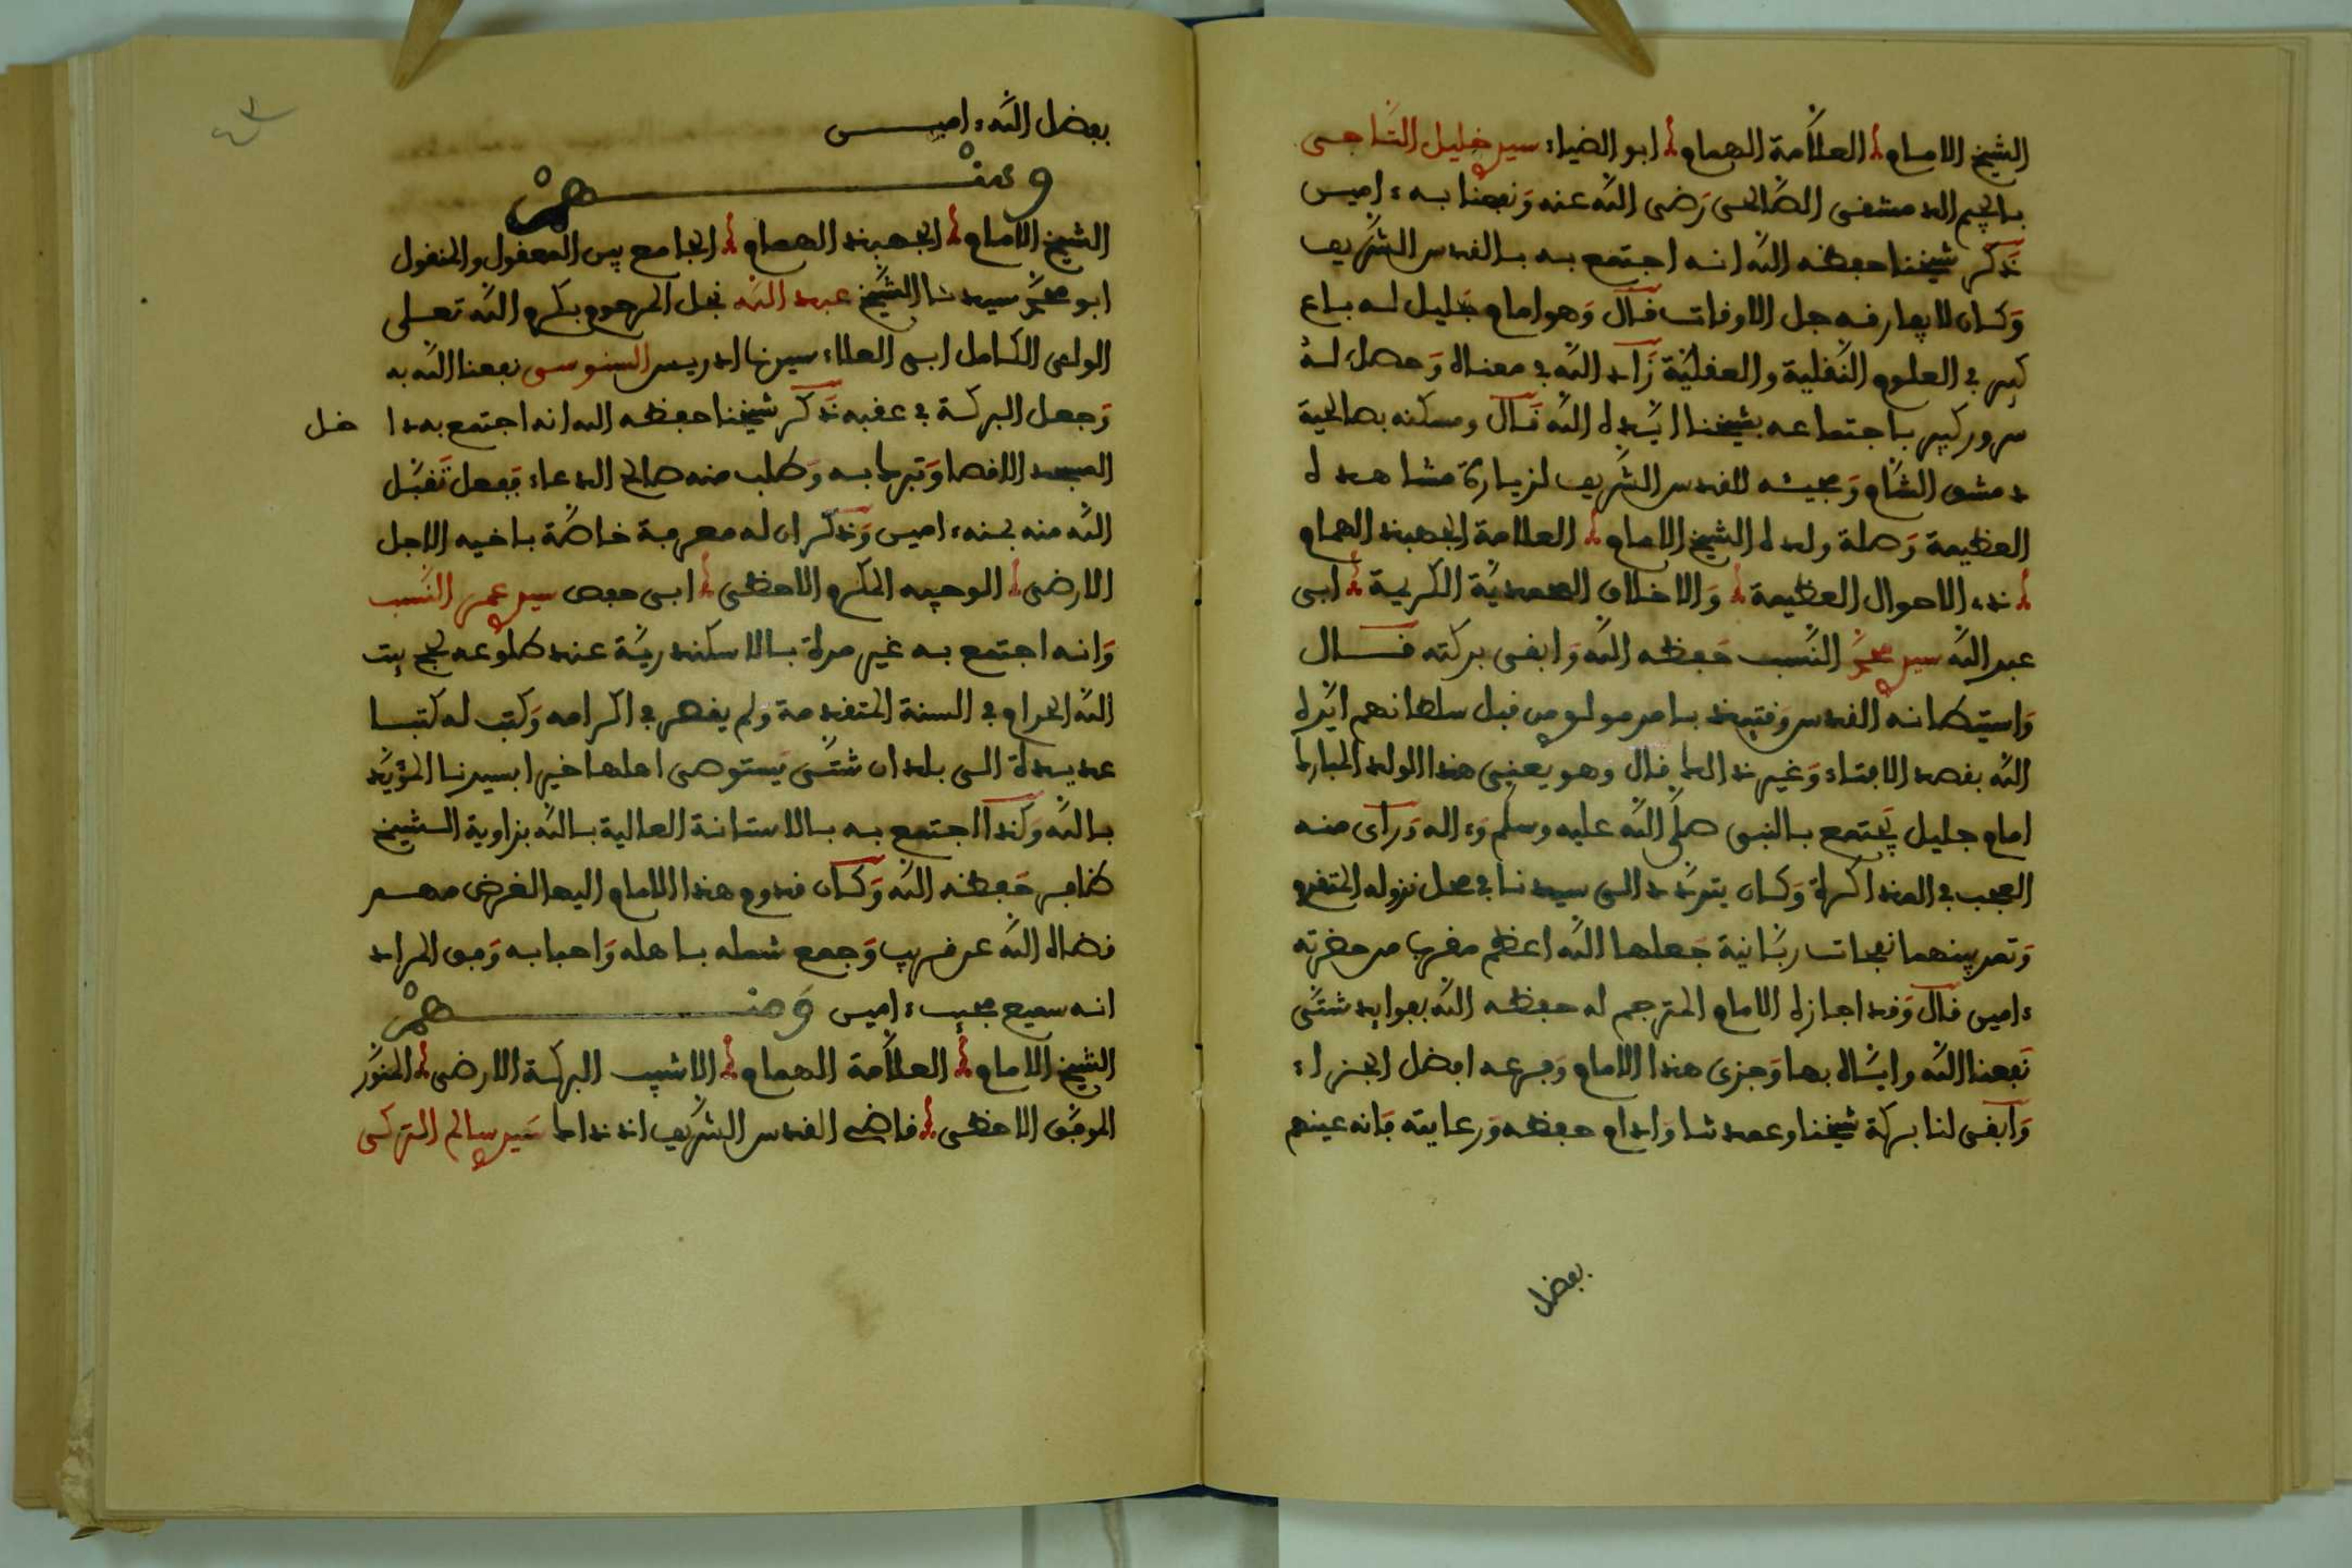 الشيخ الامام العلامة الهمام ابو الضياء سيدي خليل التاجى
بالجيم الدمشقى الصالحى رضى الله عنه ونفعنا به ءامين
ذكر شيخنا حفظه الله انه اجتمع به بالقدس الشريف
وكان لا يفارقه جل الاوقات قال وهو امام جليل له باع
كبير في العلوم النقلية والعقلية زاد الله في معناه وحصل له
سرور كبير باجتماعه بشيخنا ايده الله قال ومسكنه بصالحية
دمشق الشام ومجيئه للقدس الشريف لزيارة مشاهده
العظيمة وصلة ولده الشيخ الامام العلامة الجهبذ الهمام
ذي الاحوال العظيمة والاخلاق المحمدية الكريمة ابى
عبد الله سيدي محمد النسب حفظه الله وابقى بركته قال
واستيطانه القدس وقتئذ بامر مولوي من قبل سلطانهم ايده
الله بقصد الافتاء وغير ذالك قال وهو يعنى هذا الولد المبارك
امام جليل يجتمع بالنبى صلى الله عليه وسلم وءاله ورأى منه
العجب في المذاكرة وكان يتردد الى سيدنا في محل نزوله المتقدم
وتمر بينهما نفحات ربانية جعلها الله اعظم مقرب من حضرته
ءامين قال وقد اجازه الامام المترجم له حفظه الله بفوايد شتى
نفعنا الله واياه بها وجزى هذا الامام وفرعه افضل الجزاء
وابقى لنا بركة شيخنا وعمدتنا وادام حفظه ورعايته فانه عينهم
بفضل
بفضل الله ءامين
ومنهم
الشيخ الامام الجهبذ الهمام الجامع بين المعقول والمنقول
ابو محمد سيدنا الشيخ عبد الله نجل المرحوم بكرم الله تعلى
الولى الكامل ابى العلاء سيدنا ادريس السنوسى نفعنا الله به
وجعل البركة في عقبه ذكر شيخنا حفظه الله انه اجتمع به دا خل
المسجد الاقصا وتبرك به وطلب منه صالح الدعاء ففعل تقبل
الله منه بمنه ءامين وذكر ان له معرفة خاصة باخيه الاجل
الارضى الوجيه المكرم الاحظى ابى حفص سيدي عمر النسب
وانه اجتمع به غير مرة بالاسكندرية عند طلوعه لحج بيت
الله الحرام في السنة المتقدمة ولم يقصر في اكرامه وكتب له كتبا
عديدة الى بلدان شتى يستوصى اهلها خيرا بسيدنا المؤيد
بالله وكذا اجتمع به بالاستانة العالية بالله بزاوية الشيخ
ظافر حفظه الله وكان قدوم هذا الامام اليها لغرض مهم
قضاه الله عن قريب وجمع شمله باهله واحبابه وفق المراد
انه سميع مجيب ءامين ومنهم
الشيخ الامام العلامة الهمام الاشيب البركة الارضى المنور
الموفق الاحظى قاضى القدس الشريف اذ ذاك سيدي سالم التركى